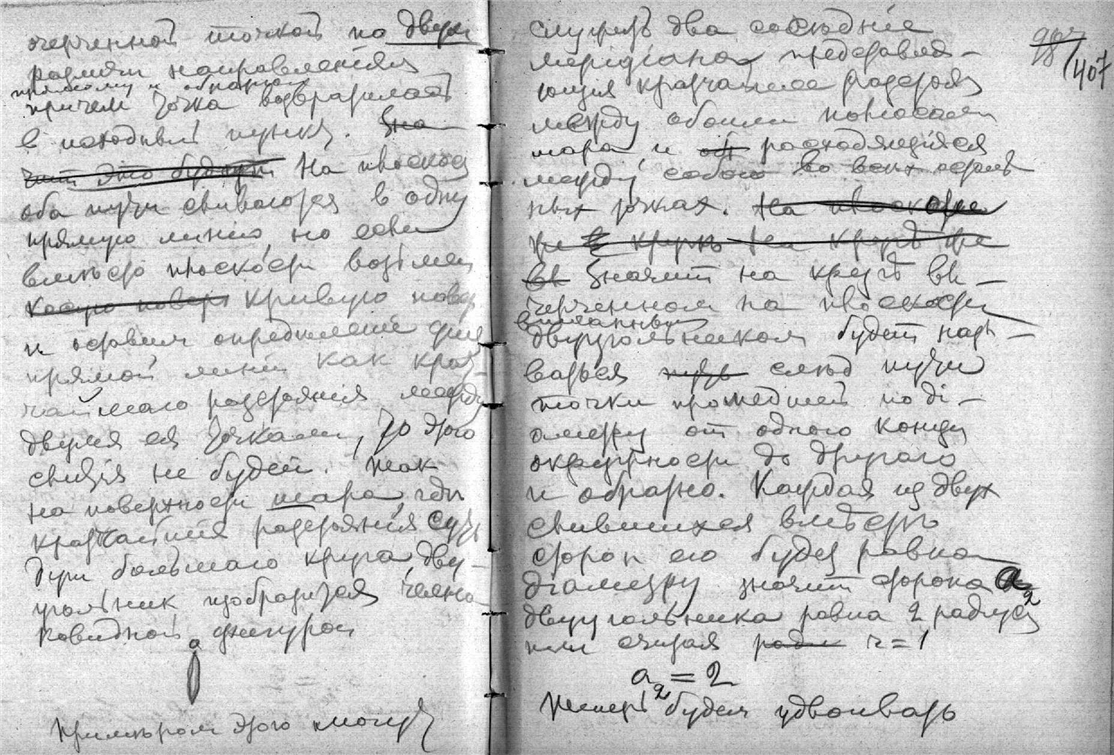 очерченной точкой по двум
разным направлениям
прямому и обратному
причем точка возвратилась
в исходный пункт. Зна
чит это будут На плоскос
оба пути сливаются в одну
прямую линию, но если
вместо плоскости возьмем
кривую повер
и оставим определение для
прямой линии как крат-
чайшаго разстояния между
двумя ея точками, то этого
слития не будет. Так
на поверхности шара где
кратчайшия разстояния суть
дуги большаго круга дву-
угольник изобразится чечеви
ковидной фигурой
a
Примером этого могут
служить два соседние
меридиана представля-
ющия кратчайшее разстоян
между обоими полюсами
шара и расходящияся
между собою во всех осталь
ных точках. На плоскости
же в круге На круге же
вв Значит на круге вы-
черченном на плоскости
вписанным
двуугольником будет назы-
ваться путь след пути
точки прошедшей по ді-
аметру от одного конца
окружности до другого
и обратно. Каждая из двух
слившихся вместе
сторон его будет равна
діаметру значит сторона a₂
двуугольника равна 2 радиус
или считая ради r = 1
a₂ = 2
Теперь будем удвоивать
407